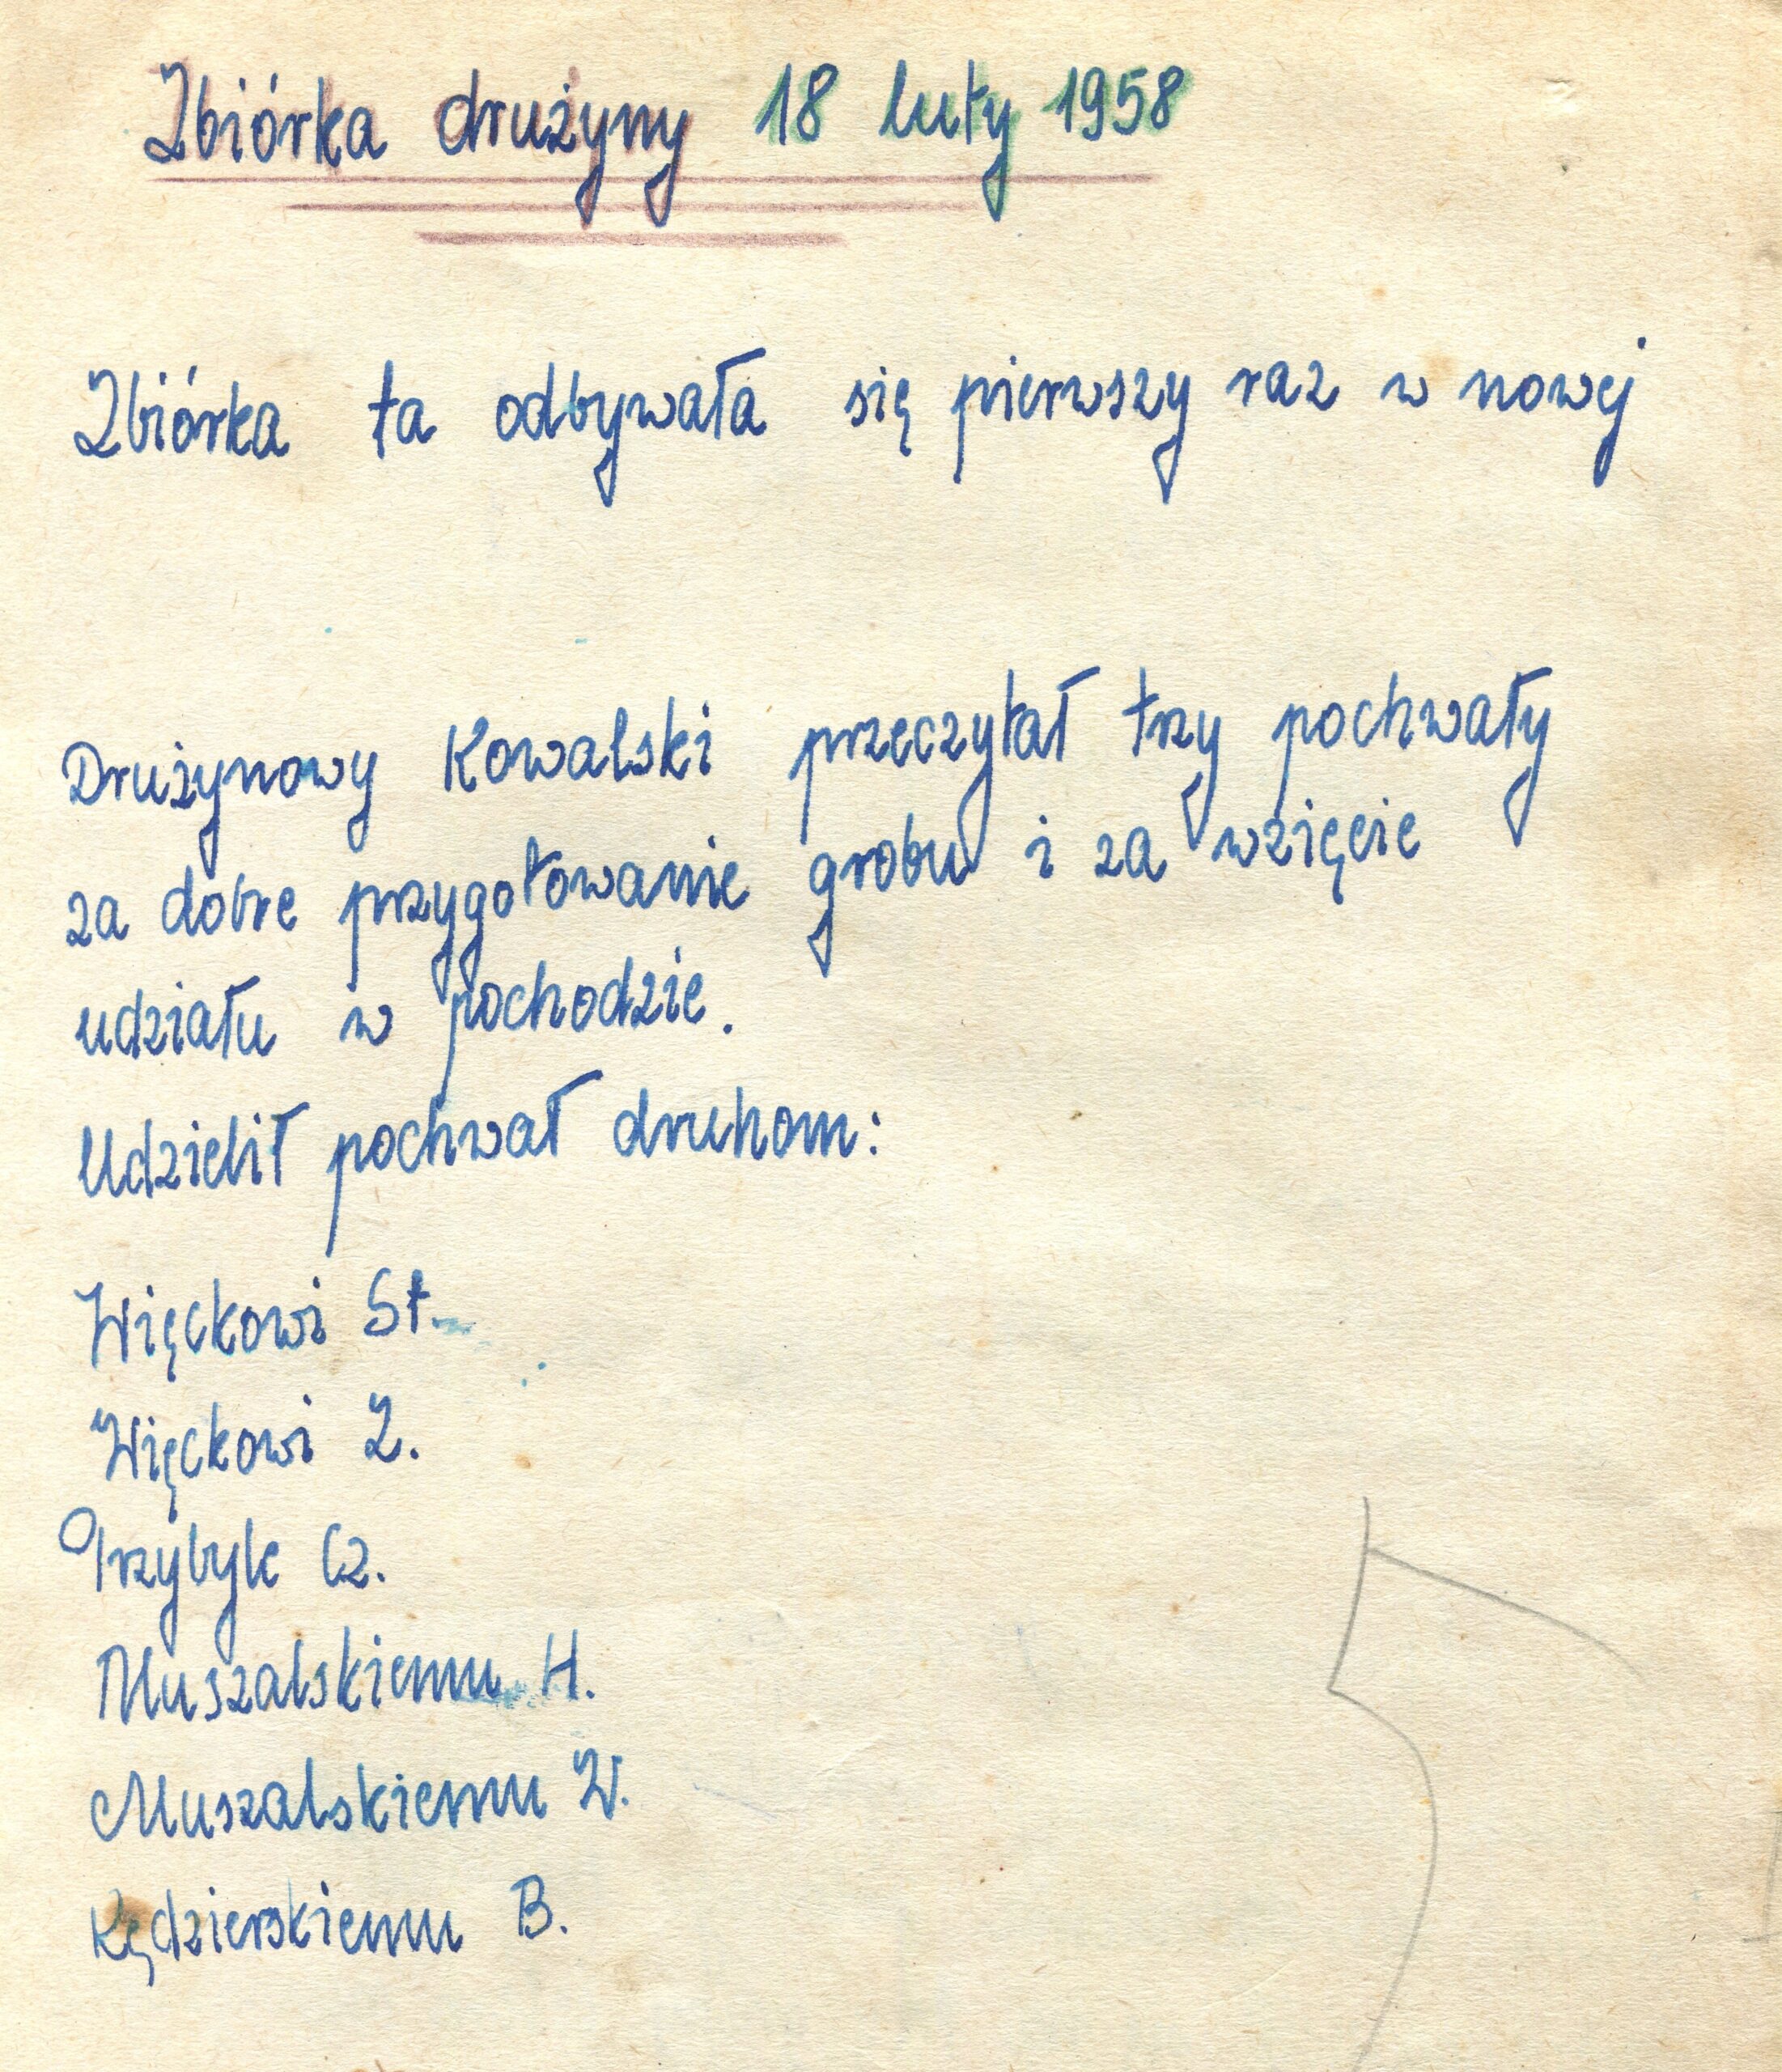 Zbiórka drużyny 18 luty 1958
Zbiórka ta odbywała się pierwszy raz w nowej
Drużynowy Kowalski przeczytał trzy pochwały
za dobre przygotowanie grobu i za wzięcie
udziału w pochodzie.
Udzielił pochwał druhom:
Więckowi St.
Więckowi Z.
Przybyle Cz.
Muszalskiemu H.
Muszalskiemu W.
Kędzierskiemu B.